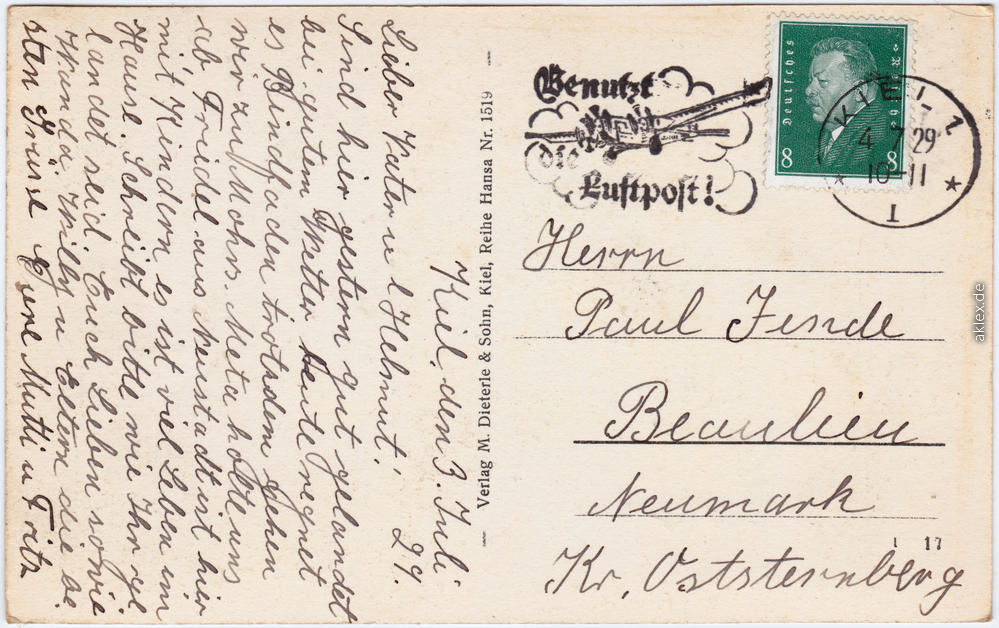 Kiel, den 3. Juli
29.
Lieber Vater u l Helmut!
Sind hier gestern gut gelandet
bei gutem Wetter heute regnet
es Bindfaden trotzdem gehen
wir zu Mohrs. Meta holte uns
ab Friedel aus Neustadt ist hier
mit Kindern es ist viel Leben im
Hause. Schreibt bitte wie Ihr ge
landet seid Euch Lieben sowie
Wanda Willy u Eltern die be.
sten Grüsse Eure Mutti u Fritz
Verlag M. Dieterle & Sohn, Kiel, Reihe Hansa Nr. 1519
Benutzt
die
Luftpost!
Deutsches Reich
8 8
KIEL 1
4 7.29
10-11
I
Herrn
Paul Jende
Beaulieu
Neumark
Kr. Oststernberg
1 17
aklex.de